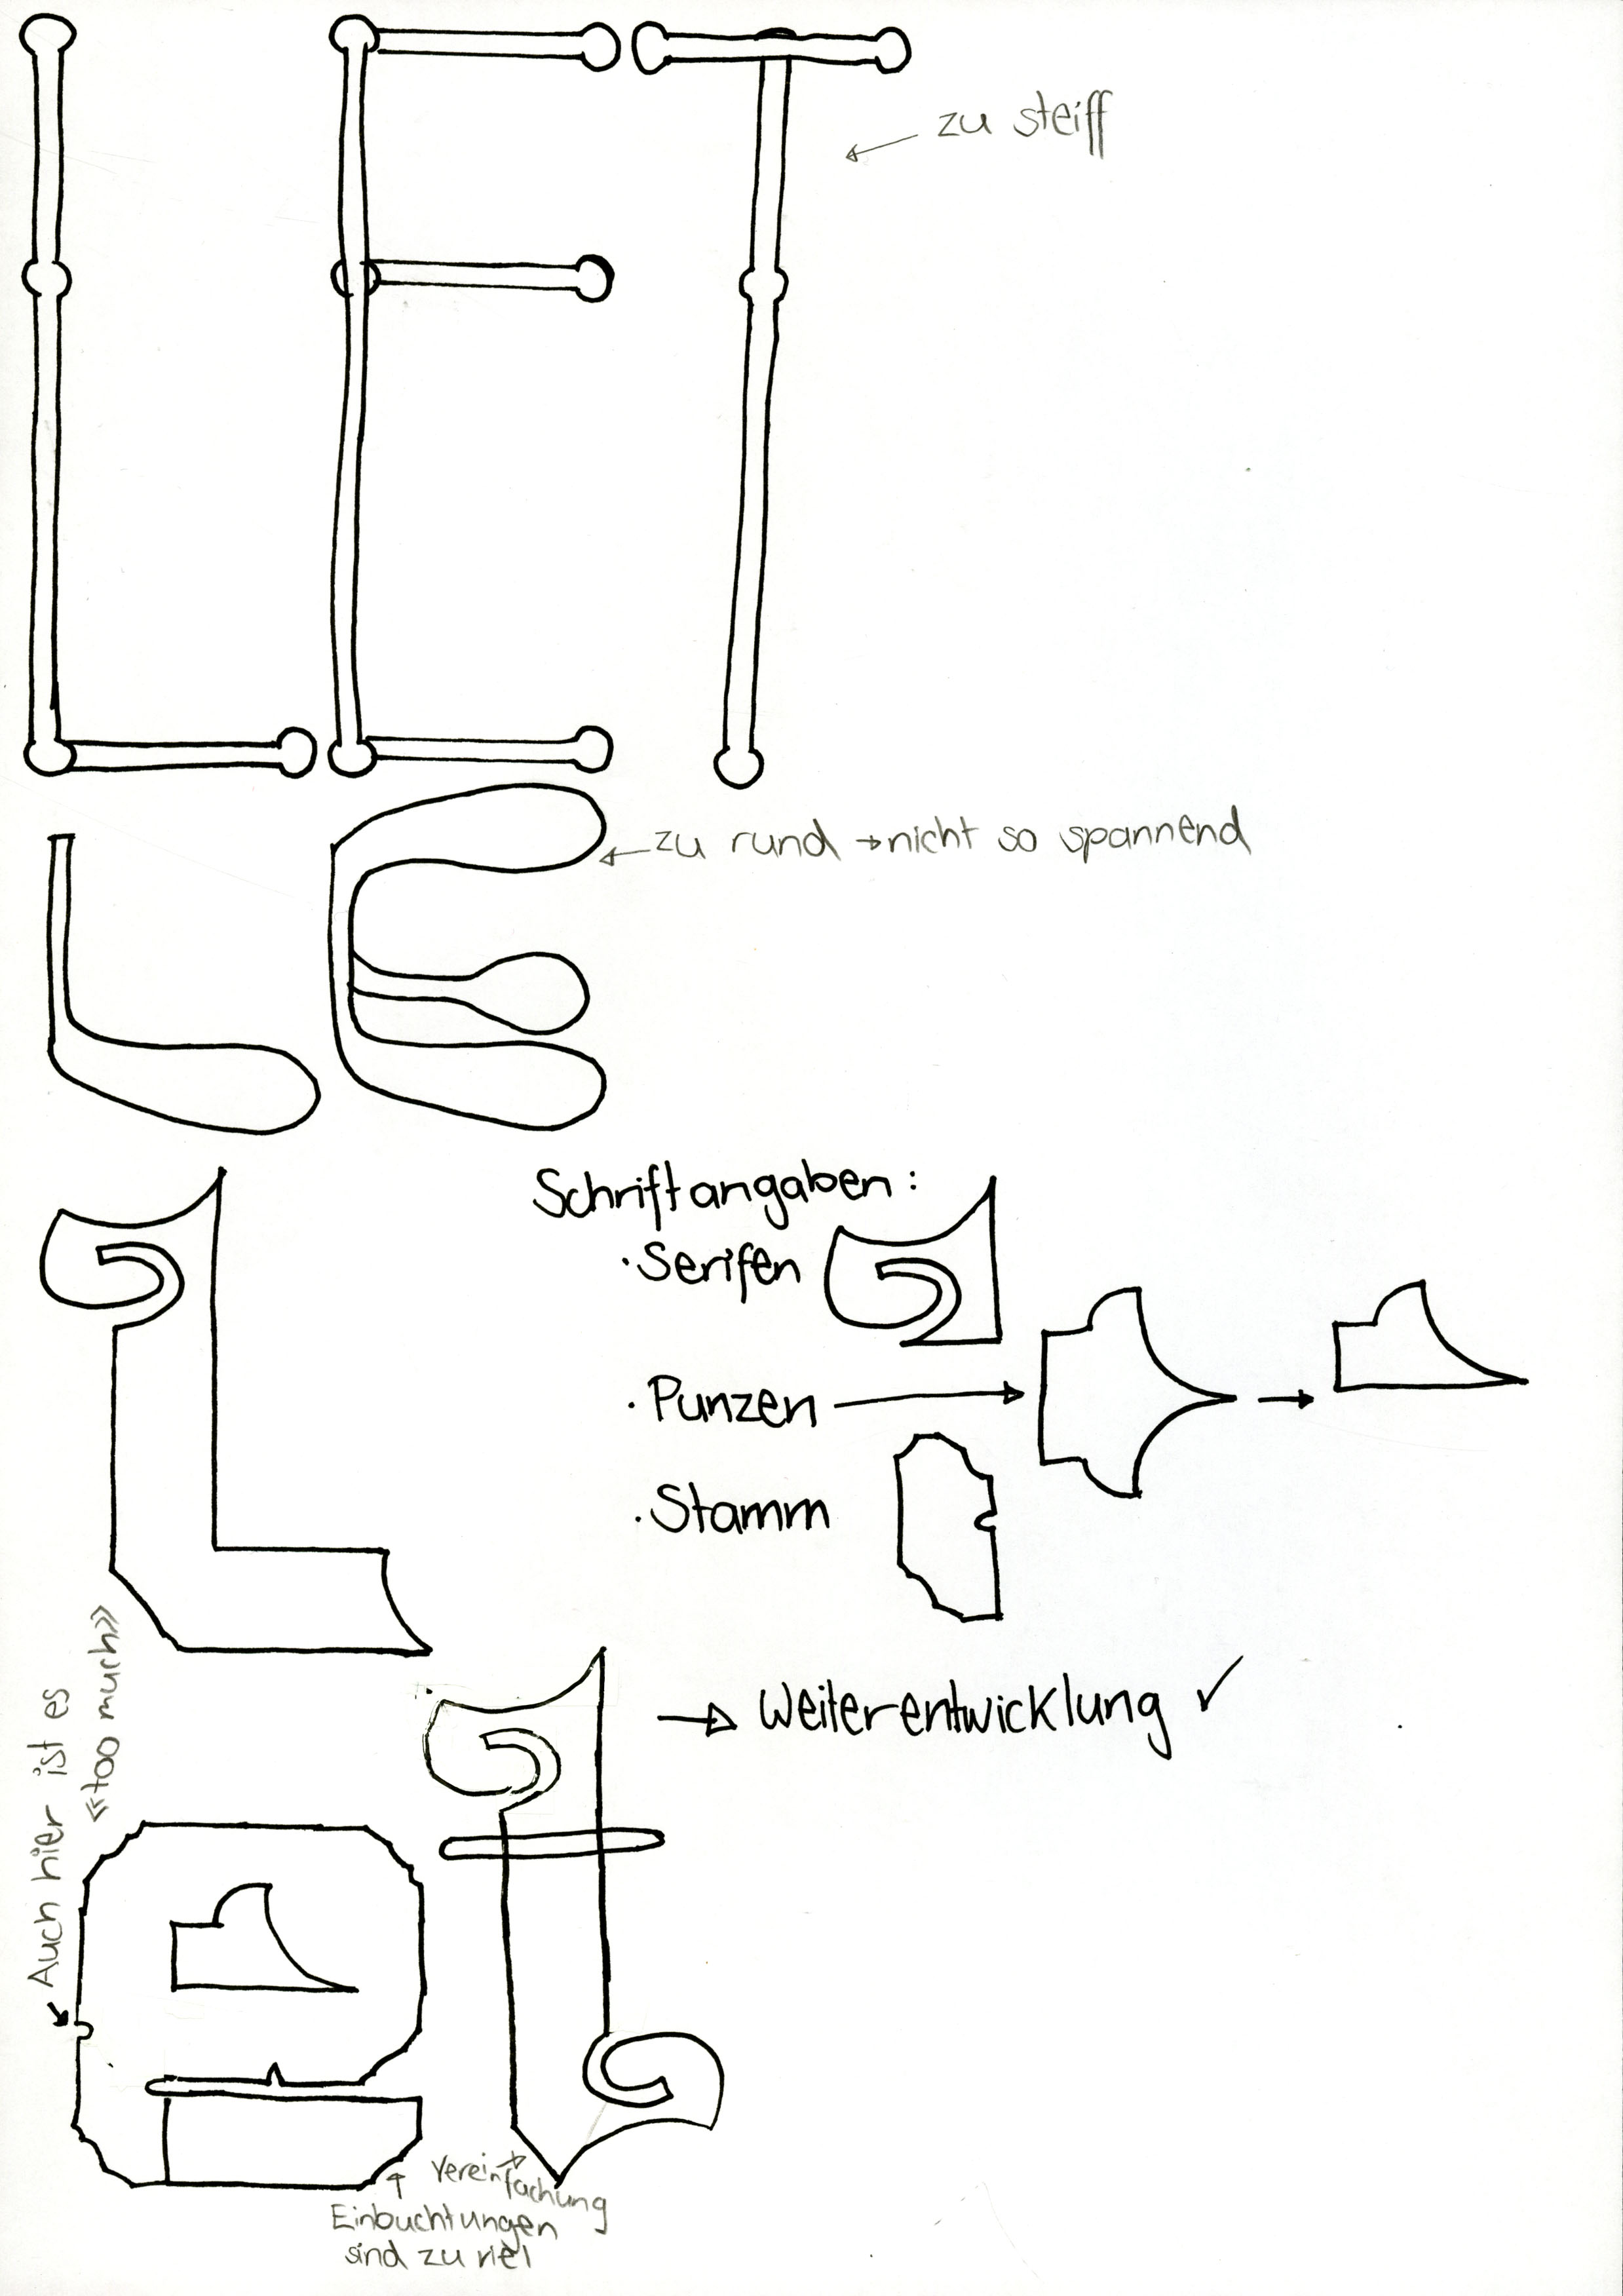 LET
zu steiff
LE
zu rund → nicht so spannend
L
Schriftangaben:
· Serifen
· Punzen
· Stamm
Auch hier ist es
«too much»
→ Weiterentwicklung ✓
et
Vereinfachung
Einbuchtungen
sind zu viel